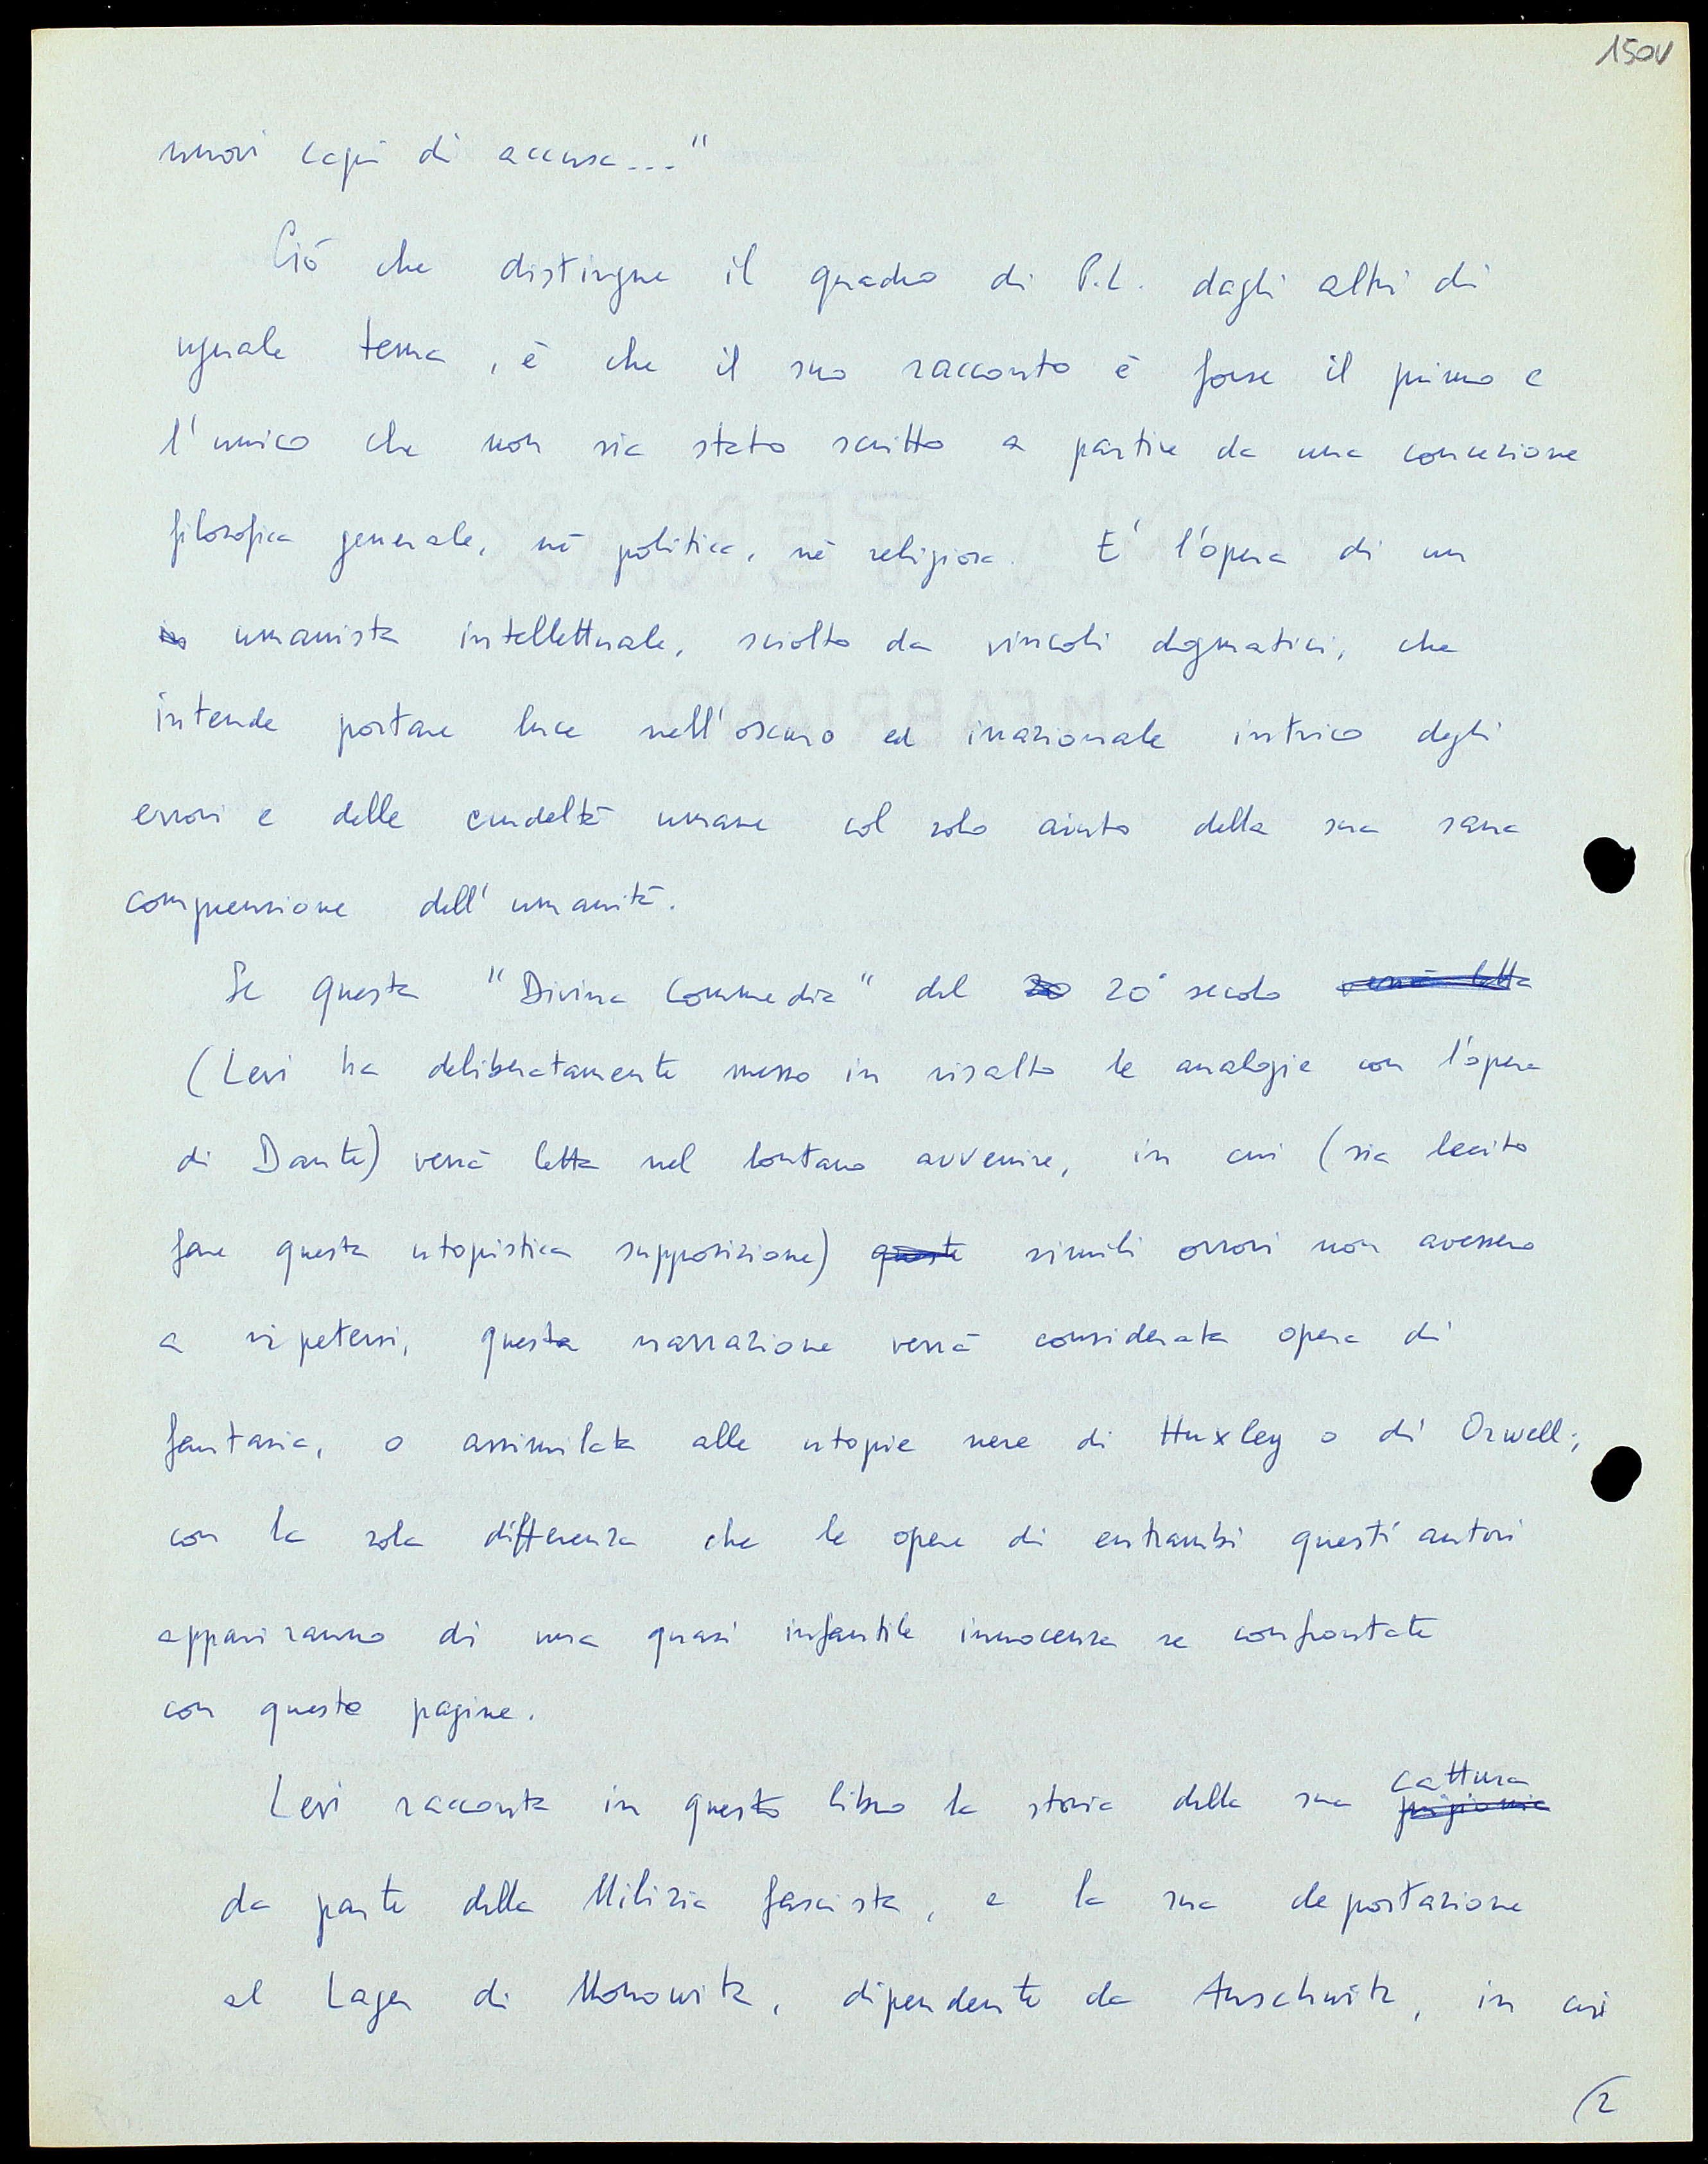 150v
nuovi capi di accusa..."
Ciò che distingue il quadro di P.L. dagli altri di
uguale tema, è che il suo racconto è forse il primo e
l'unico che non sia stato scritto a partire da una concezione
filosofica generale, né politica, né religiosa. E' l'opera di un
umanista intellettuale, sciolto da vincoli dogmatici, che
intende portare luce nell'oscuro ed irrazionale intrico degli
errori e delle crudeltà umane col solo aiuto della sua sana
comprensione dell'umanità.
Se questa "Divina Commedia" del 20 20° secolo verrà letta
(Levi ha deliberatamente messo in risalto le analogie con l'opera
di Dante) verrà letta nel lontano avvenire, in cui (sia lecito
fare questa utopistica supposizione) queste simili orrori non avessero
a ripetersi, questa narrazione verrà considerata opera di
fantasia, o assimilata alle utopie nere di Huxley o di Orwell;
con la sola differenza che le opere di entrambi questi autori
appariranno di una quasi infantile innocenza se confrontate
con queste pagine.
Levi racconta in questo libro la storia della sua prigionia cattura
da parte della Milizia fascista, e la sua deportazione
al Lager di Monowitz, dipendente da Auschwitz, in cui
2